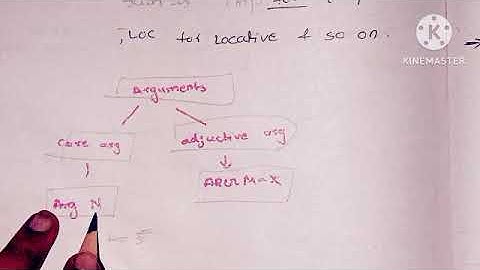 , LOC for locative & so on.
KINEMASTER
Arguments
Core arg
adjuctive arg
Arg N
ARGM-X